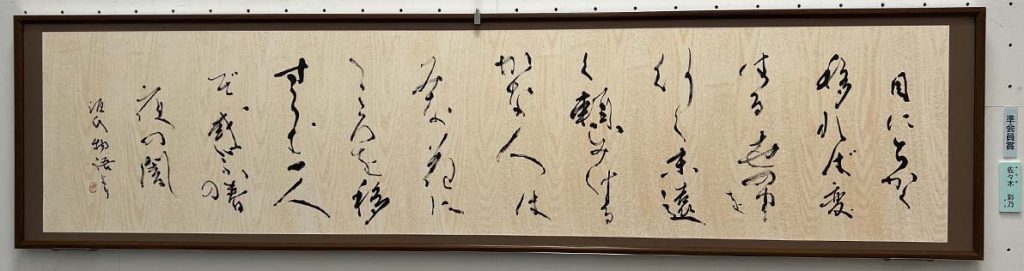 目にちかく
移れば変
はる世の中を
行く末遠
く頼みける
かな人は
みな花に
こころを移
すらむ一人
ぞ惑ふ春の
夜の闇
源氏物語より
準会員賞
佐々木 彩乃